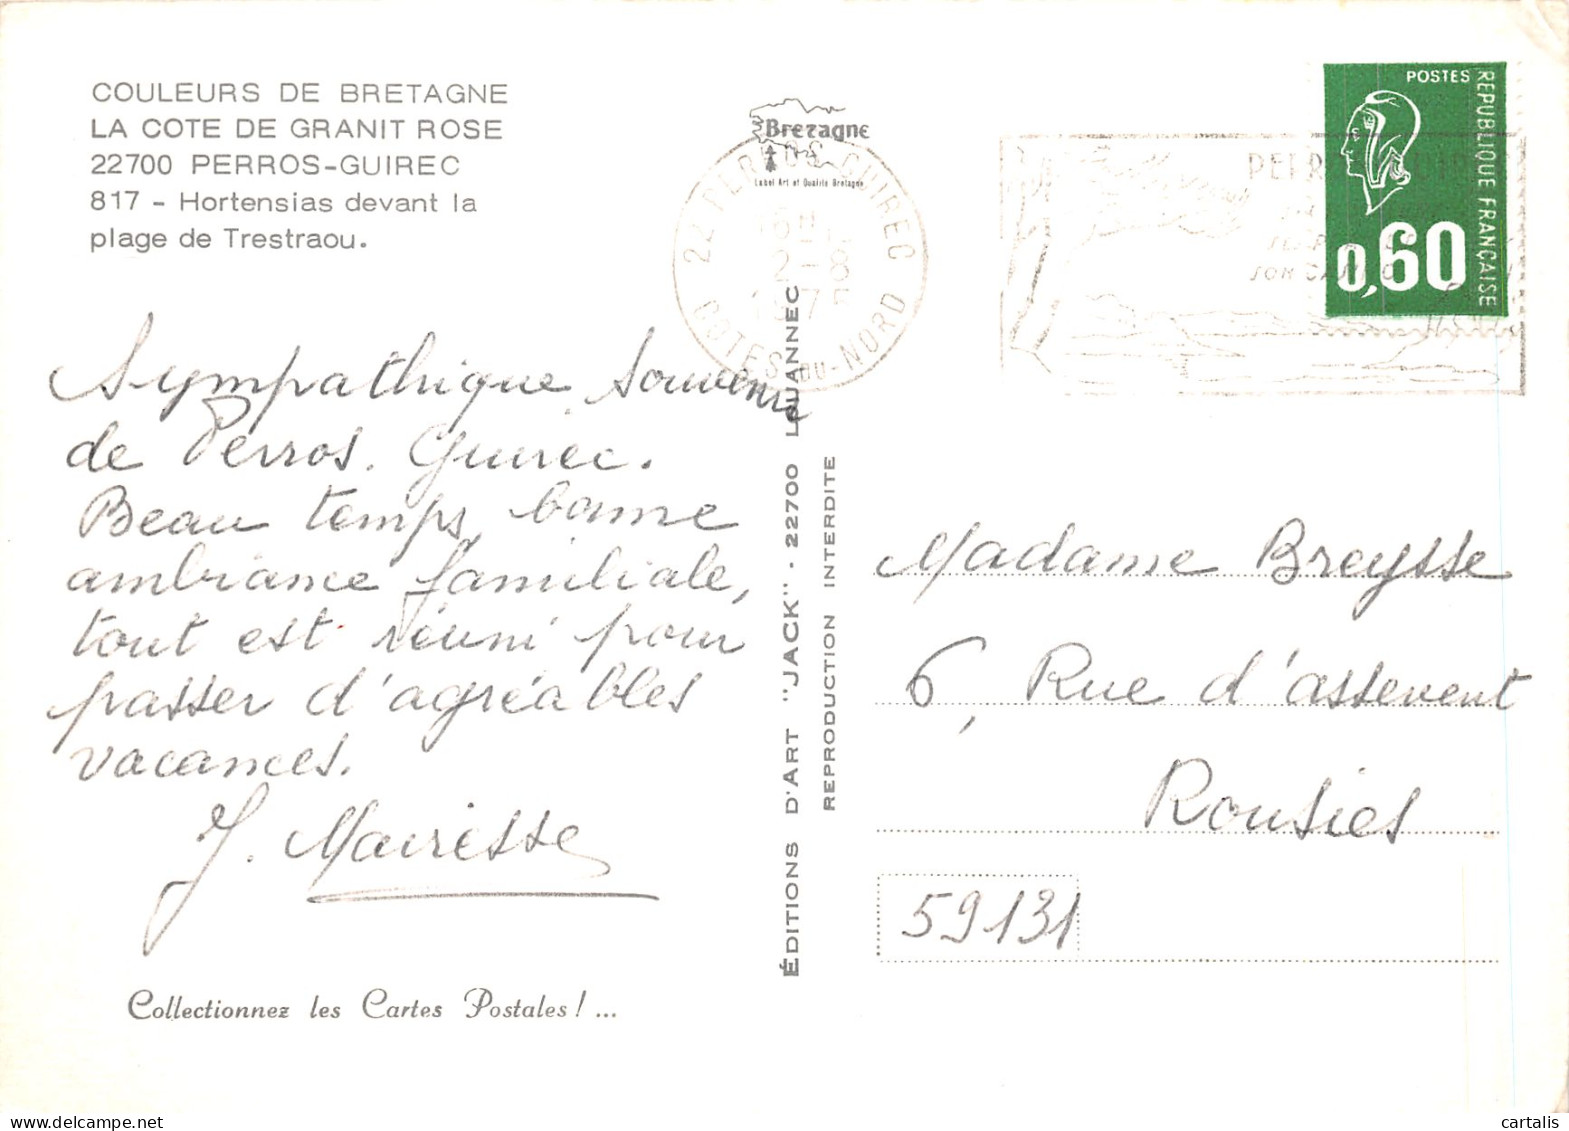 COULEURS DE BRETAGNE
LA COTE DE GRANIT ROSE
22700 PERROS-GUIREC
817 - Hortensias devant la
plage de Trestraou.
Bretagne
Label Art et Qualité Bretagne
22 PERROS-GUIREC
2-8
COTES-DU-NORD
POSTES
REPUBLIQUE FRANÇAISE
0,60
Sympathique souvenir
de Perros. Guirec.
Beau temps, bonne
ambiance familiale,
tout est réuni pour
passer d'agréables
vacances.
J. Mairesse
Collectionnez les Cartes Postales ! ...
ÉDITIONS D'ART "JACK" - 22700 LOUANNEC
REPRODUCTION INTERDITE
Madame Breysse
6, Rue d'assevent
Rousies
59131
cartalis